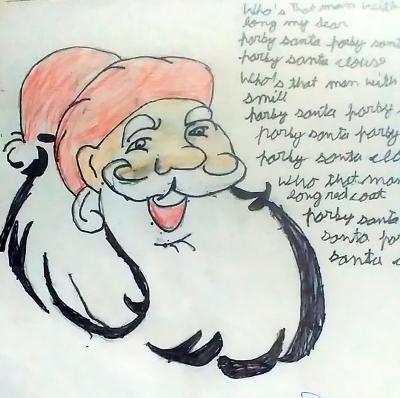 Who's that man with
long my dear
porby santa porby sant
porby santa clouse
Who's that man with
smill
porby santa porby
porby santa porby
porby santa clo
Who that man
long red coat
porby santa
santa po
santa c